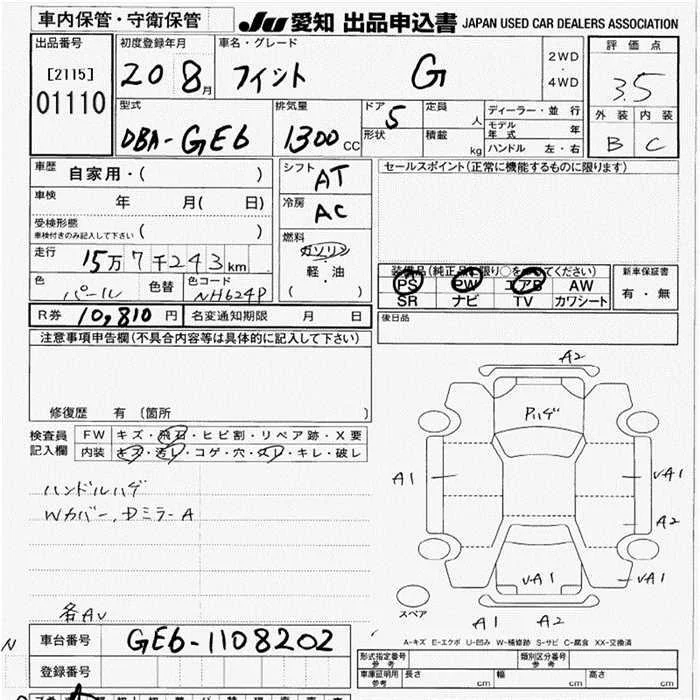 車内保管・守衛保管
JU 愛知 出品申込書 JAPAN USED CAR DEALERS ASSOCIATION
出品番号
[2115]
01110
初度登録年月
20 8月
車名・グレード
フィット G
2WD
・
4WD
評価点
3.5
外装 内装
B C
型式
DBA-GE6
排気量
1300cc
ドア 5
形状
定員 人
積載 kg
ディーラー・並行
モデル年式 年
ハンドル 左・右
車歴 自家用・( )
車検 年 月( 日)
受検形態
車検付きのみ記入して下さい ( )
走行 15万7千243km
色 パール 色替 色コード NH624P
シフト AT
冷房 AC
燃料
ガソリン
・
軽油
( )
セールスポイント(正常に機能するものに限ります)
装備品(純正品に限り○をつけてください)
PS PW エアB AW
SR ナビ TV カワシート
新車保証書
有・無
R券 10,810円 名変通知期限 月 日
後日品
注意事項申告欄(不具合内容等は具体的に記入して下さい)
修復歴 有 (箇所 )
検査員記入欄
FW キズ・飛石・ヒビ割・リペア跡・X要
内装 キズ・汚レ・コゲ・穴・スレ・キレ・破レ
ハンドルハゲ
Wカバー、Dミラー A
各AU
A2
Pハゲ
A1
UA1
A2
UA1
UA1
A1 A2
スペア
A-キズ E-エクボ U-凹み W-補修跡 S-サビ C-腐食 XX-交換済
N
車台番号 GE6-1108202
登録番号
形式指定番号
参考
類別区分番号
参考
車庫証明用
参考
長さ cm 幅 cm 高さ cm